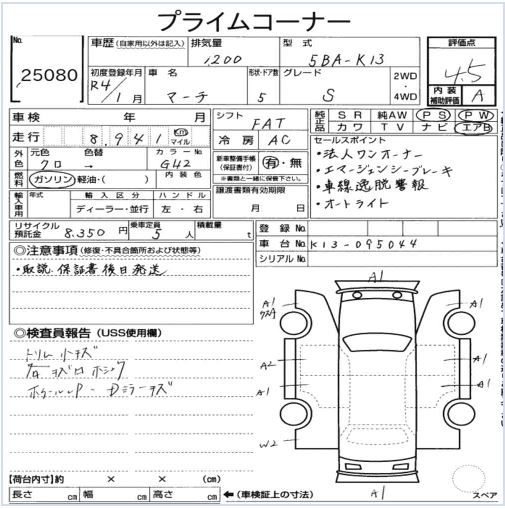 プライムコーナー
No.
25080
車歴 (自家用以外は記入) 排気量 1200 型式 5BA-K13 評価点 4.5
初度登録年月 R4/1月 車名 マーチ 形状・ドア数 5 グレード S 2WD・4WD 内装補助評価 A
車検 年 月 シフト FAT 純正品 SR 純AW PS PW
カワ TV ナビ エアB
走行 8,941 Km マイル 冷房 AC セールスポイント
外色 元色 クロ 色替 → カラーNo. G42 新車整備手帳(保証書付) 有・無
※書類と一緒に保管下さい。
・法人ワンオーナー
・エマージェンシーブレーキ
・車線逸脱警報
・オートライト
燃料 ガソリン 軽油・( ) 内装色 譲渡書類有効期限 月 日
輸入車用 年式 輸入区分 ディーラー・並行 ハンドル 左・右
リサイクル預託金 8,350円 乗車定員 5人 積載量 t
登録No.
車台No. K13-095044
シリアルNo.
◎注意事項 (修復・不具合箇所および状態等)
・取説、保証書後日発送
◎検査員報告 (USS使用欄)
A1
A1
A1
A2
A1
A1
A1
W2
A1
【荷台内寸】約 × × (cm)
長さ cm 幅 cm 高さ cm ←(車検証上の寸法)
スペア